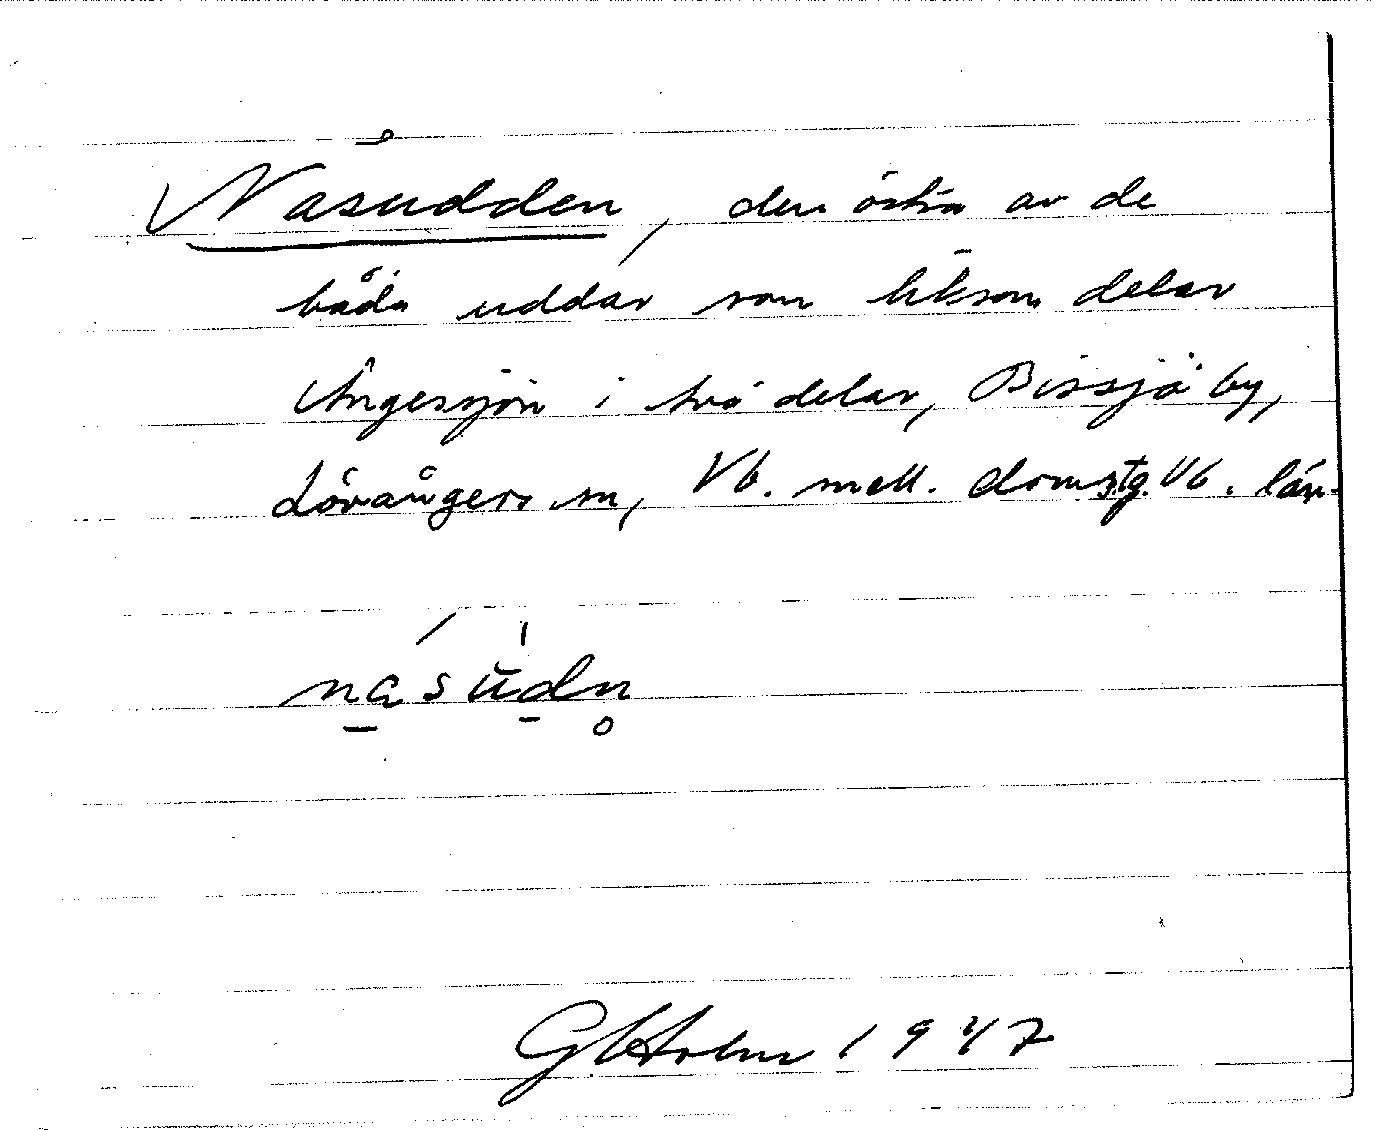 Nasudden, den östra av de
båda uddar som liksom delar
Ångersjön i två delar, Bissjö by,
Lövångers sn, Vb. mell. domstg. Vb. län.
násúdn̥
G Holm 1947